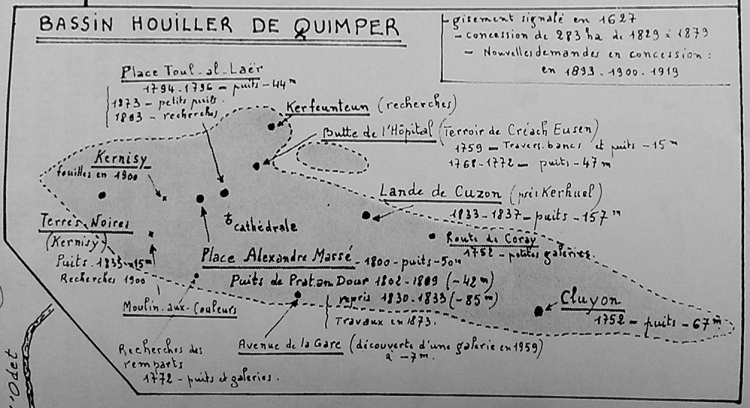 BASSIN HOUILLER DE QUIMPER
- gisement signalé en 1627
- concession de 283 ha de 1829 à 1879
- Nouvelles demandes en concession :
en 1893 - 1900 - 1919
Place Toul-al-Laër
1794-1796 - puits - 44m
1873 - petits puits.
1893 - recherches
Kerfeunteun (recherches)
Butte de l'Hôpital (Terroir de Créach Eusen)
1759 - Travers.bancs et puits - 15m
1768-1772 - puits - 47m
Kernisy
fouilles en 1900
Lande de Cuzon (près Kerhuel)
1833-1837 - puits - 157m
cathédrale
Terres Noires
(Kernisy)
Puits - 1833 - 15m
Recherches 1900
Route de Coray
1752 - petites galeries.
Place Alexandre Massé - 1800 - puits - 50m
Puits de Pratan Dour 1802-1809 (-42m)
repris 1830-1833 (-85m)
Travaux en 1873.
Cluyon
1752 - puits - 67m
Moulin-aux-Couleurs
Avenue de la Gare (découverte d'une galerie en 1959)
à -7m.
Recherches des
remparts
1772 - puits et galeries.
l'Odet